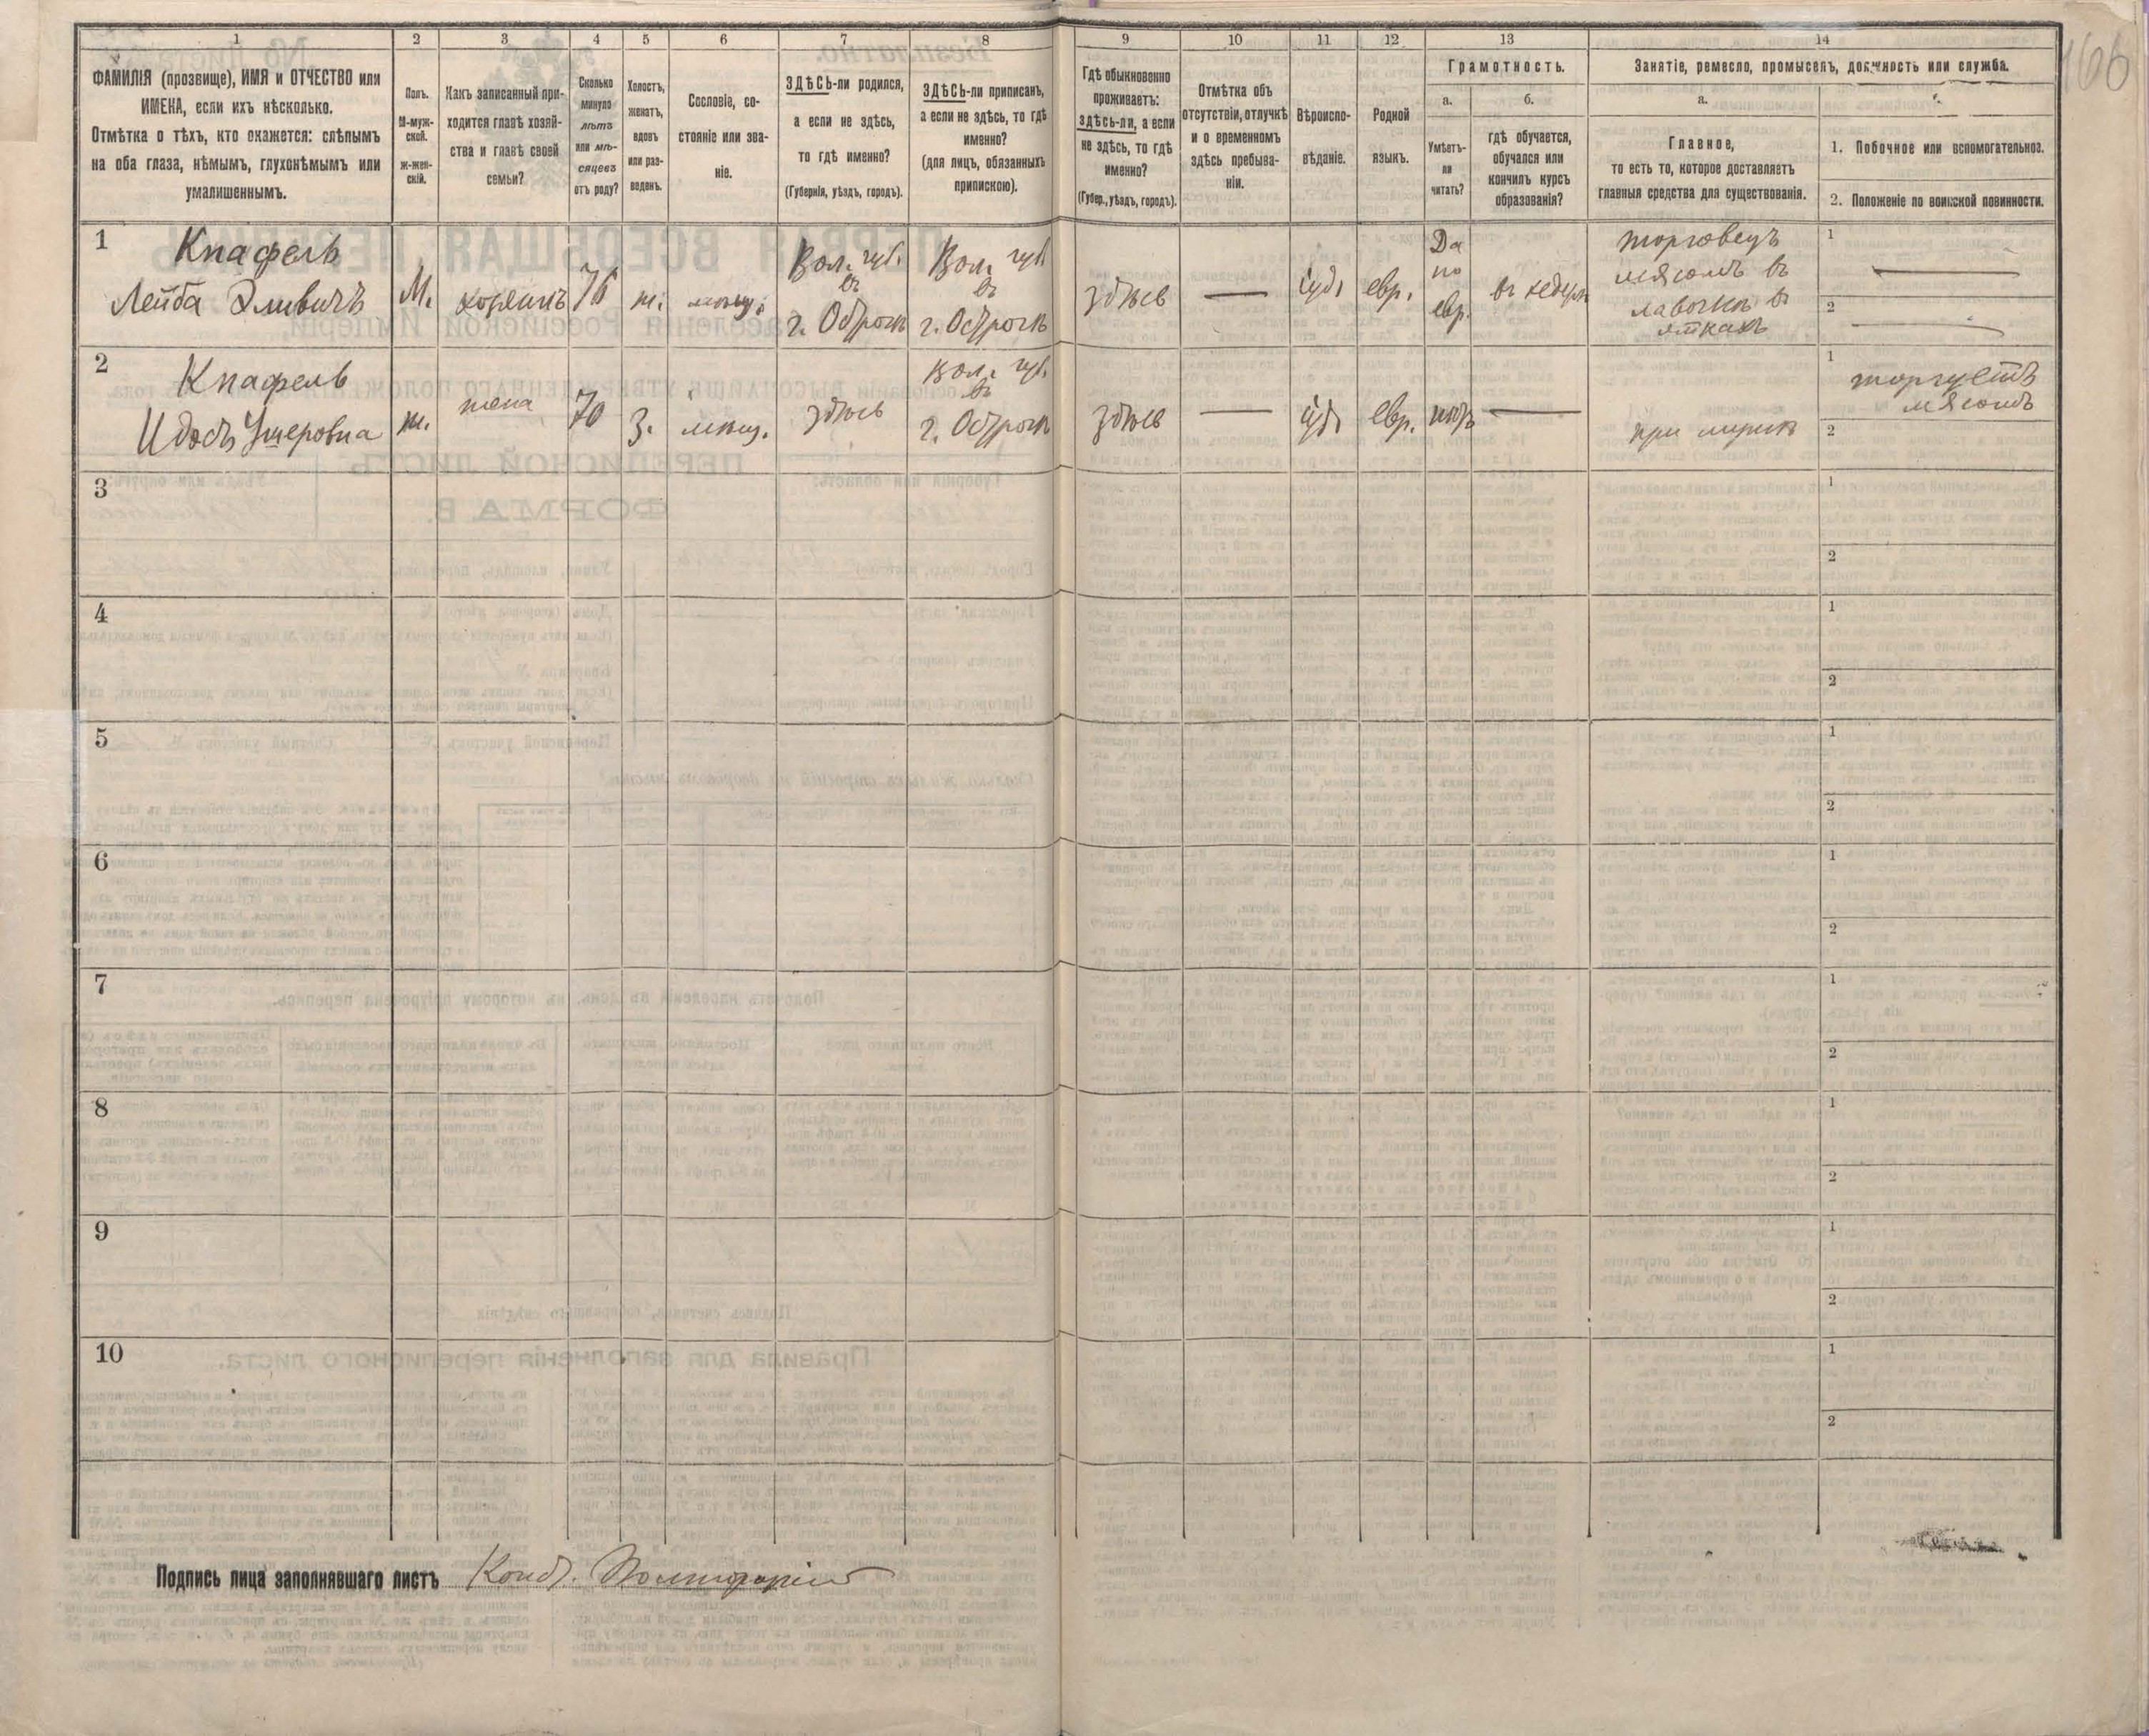 166
1
2
3
4
5
6
7
8
9
10
11
12
13
14
ФАМИЛІЯ (прозвище), ИМЯ и ОТЧЕСТВО или
ИМЕНА, если ихъ нѣсколько.
Отмѣтка о тѣхъ, кто окажется: слѣпымъ
на оба глаза, нѣмымъ, глухонѣмымъ или
умалишеннымъ.
Полъ.
М-муж-
ской.
ж-жен-
скій.
Какъ записанный при-
ходится главѣ хозяй-
ства и главѣ своей
семьи?
Сколько
минуло
лѣтъ
или мѣ-
сяцевъ
отъ роду?
Холостъ,
женатъ,
вдовъ
или раз-
веденъ.
Сословіе, со-
стояніе или зва-
ніе.
ЗДѢСЬ-ли родился,
а если не здѣсь,
то гдѣ именно?
(Губернія, уѣздъ, городъ).
ЗДѢСЬ-ли приписанъ,
а если не здѣсь, то гдѣ
именно?
(для лицъ, обязанныхъ
припискою).
Гдѣ обыкновенно
проживаетъ:
здѣсь-ли, а если
не здѣсь, то гдѣ
именно?
(Губер., уѣздъ, городъ).
Отмѣтка объ
отсутствіи, отлучкѣ
и о временномъ
здѣсь пребыва-
ніи.
Вѣроиспо-
вѣданіе.
Родной
языкъ.
Грамотность.
а.
Умѣетъ-
ли
читать?
б.
гдѣ обучается,
обучался или
кончилъ курсъ
образованія?
Занятіе, ремесло, промыселъ, должность или служба.
а.
Главное,
то есть то, которое доставляетъ
главныя средства для существованія.
1. Побочное или вспомогательное.
2. Положеніе по воинской повинности.
1
Кнафель
Лейба Эливичъ
М.
хозяинъ
76
ж.
мѣщ.
Вол. губ.
въ
г. Острогѣ
Вол. губ.
въ
г. Острогѣ
здѣсь
—
іуд.
евр.
Да
по
евр.
въ хедерѣ
торговецъ
мясомъ въ
лавочкѣ въ
яткахъ
1
—
2
—
2
Кнафель
Идэсъ Ушеровна
ж.
жена
70
З.
мѣщ.
здѣсь
Вол. губ.
въ
г. Острогѣ
здѣсь
—
іуд.
евр.
нѣтъ
—
при мужѣ
1
торгуетъ
мясомъ
2
3
1
2
4
1
2
5
1
2
6
1
2
7
1
2
8
1
2
9
1
2
10
1
2
Подпись лица заполнявшаго листъ